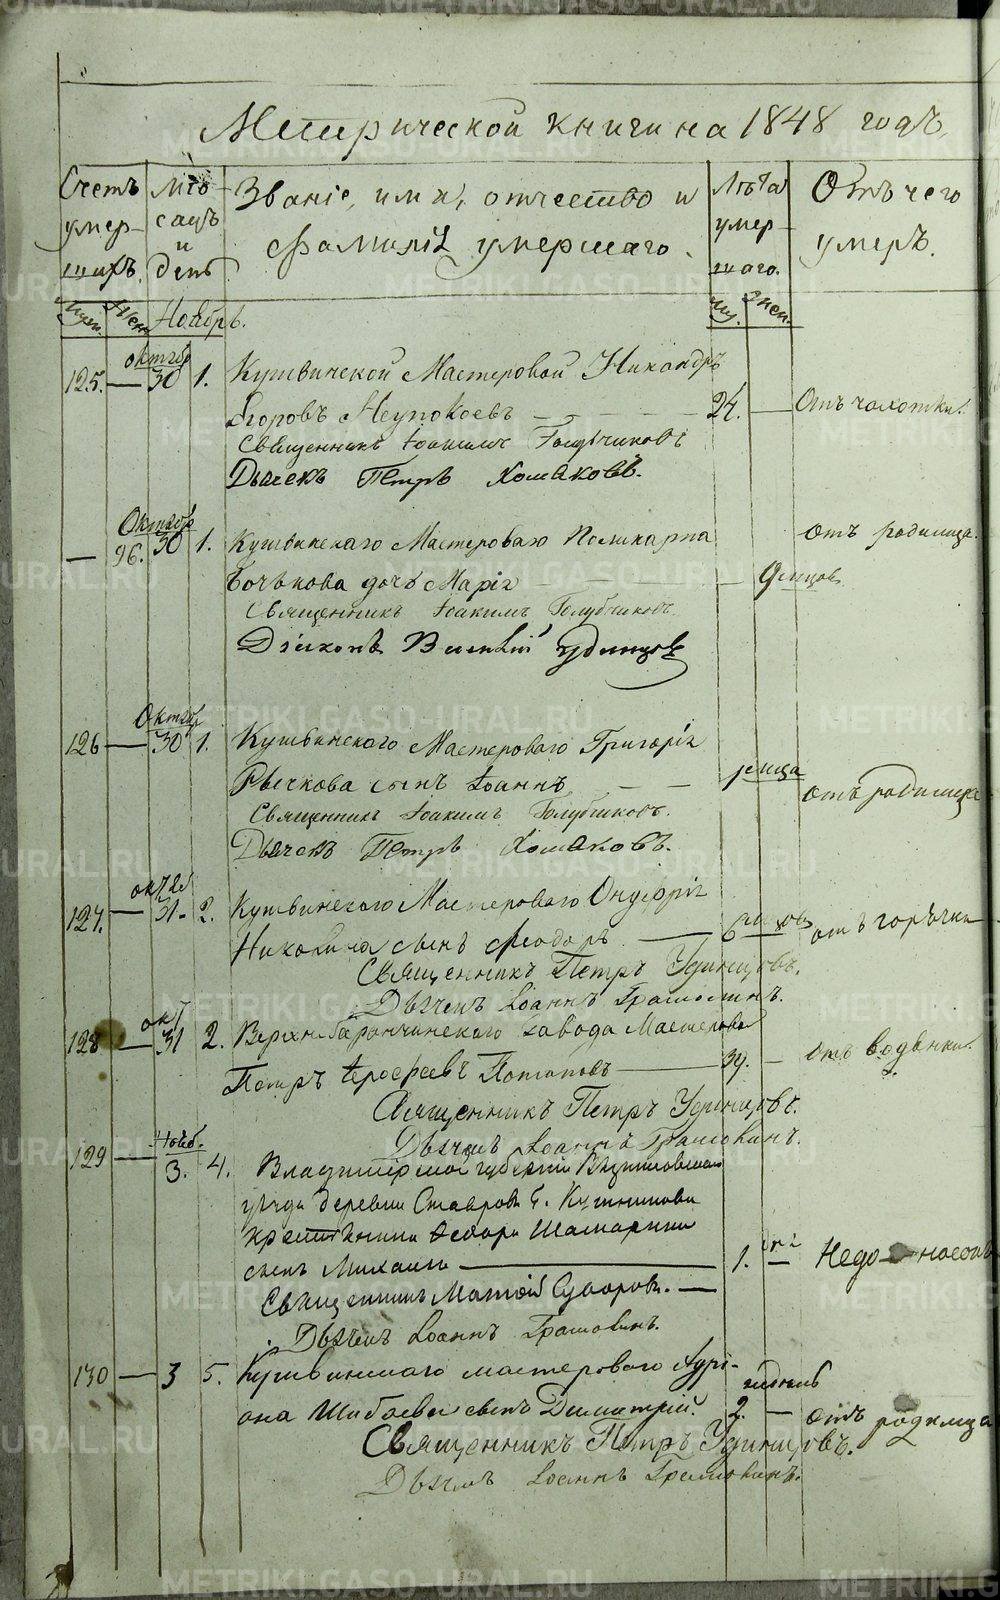 Метрической книги на 1848 годъ
Счетъ умер- шихъ.
Мѣ- сяцъ и день
Званіе, имя, отчество и фамилія умершаго.
Лѣта умер- шаго.
Отъ чего умеръ.
муж. жен. Ноябрь. му. жен.
октбр
125. — 30 1. Кушвинской Мастеровой Никандръ
Егоровъ Неупокоевъ — 24. — Отъ чахотки.
Священникъ Іоакимъ Голубчиковъ
Дьячекъ Петръ Хомяковъ.
Октябр
— 96. 30 1. Кушвинскаго Мастероваго Поликарпа отъ родимца.
Бочькова дочь Марія — 9 мѣсцов
Священникъ Іоакимъ Голубчиковъ
Діяконъ Василій Удинцовъ
Октяб
126 — 30 1. Кушвинского Мастероваго Григорія
Рычкова сынъ Іоаннъ отъ родимца
Священникъ Іоакимъ Голубчиковъ.
Дьячекъ Петръ Хомяковъ.
окт
127. — 31 - 2. Кушвинского Мастерового Онуфрія
сынъ Феодоръ — 6 отъ горячки
Священникъ Петръ Удинцовъ.
Дьячекъ Іоаннъ
окт
128 — 31 2. Верхнебаранчинского завода Мастеровой
Петръ Ерофеевъ Потаповъ — 39. — отъ водянки.
Священникъ Петръ Удинцовъ.
Дьячекъ Іоаннъ
Нояб.
129 — 3. 4. Владимірской губерніи
уѣзда деревни
крестьянина Федора
сынъ Михаилъ — 1.
Священникъ Матѳій Суворовъ. —
Дьячекъ Іоаннъ
130 — 3 5. Кушвинскаго мастероваго Адрі-
недѣль
ана Шибаева сынъ Димитрій. 2. — отъ родимца
Священникъ Петръ Удинцовъ.
Дьячекъ Іоаннъ
METRIKI.GASO-URAL.RU